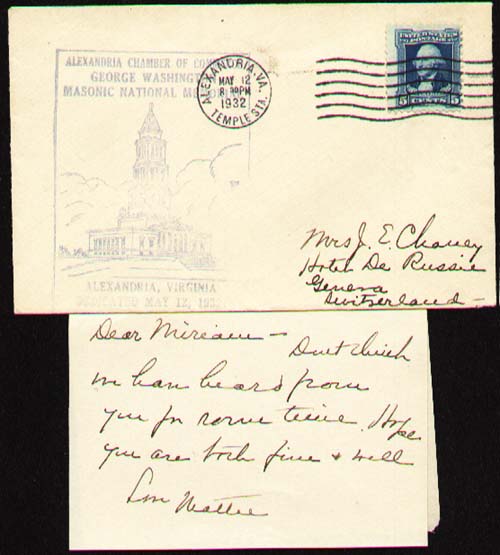 ALEXANDRIA CHAMBER OF COM
GEORGE WASHINGT
MASONIC NATIONAL ME
ALEXANDRIA, VIRGINIA
DEDICATED MAY 12, 193
ALEXANDRIA, VA.
MAY 12
8 PM
1932
TEMPLE STA.
UNITED STATES
POSTAGE
5 CENTS 5
Mrs J. E. Chaney
Hotel De Russie
Geneva
Switzerland -
Dear Miriam - Dont think
we have heard from
you for some time. Hope
you are both fine & well
Mattie